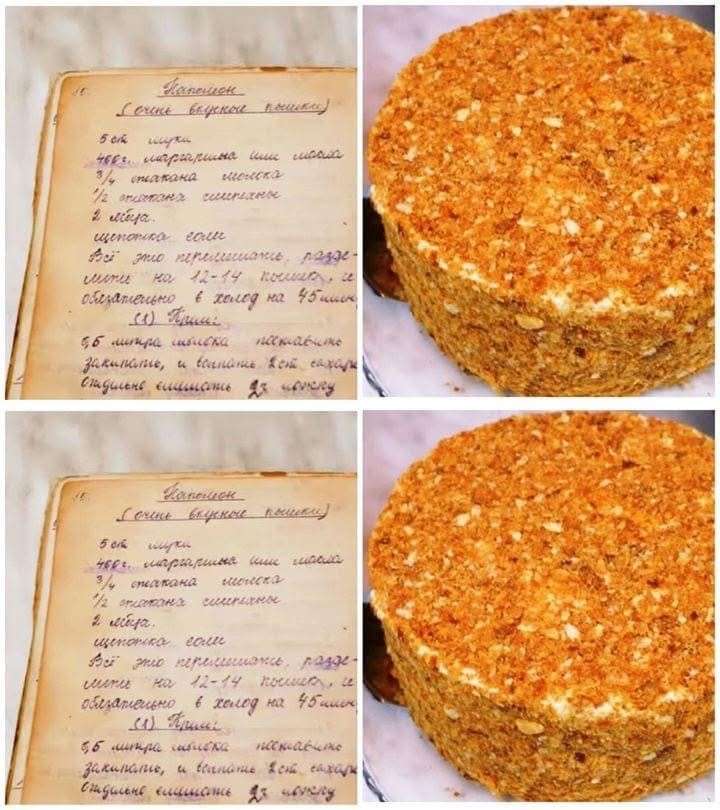 Наполеон
(очень вкусные пышки)
5 ст муки
400г. маргарина или масла
3/4 стакана молока
1/2 стакана сметаны
2 яйца.
щепотка соли
Всё это перемешать, разде-
лить на 12-14 пышек, и
обязательно в холод на 45 мин
(1) Крем:
0,5 литра молока поставить
закипать, и всыпать 2 ст сахара
Отдельно смешать ложку
Наполеон
(очень вкусные пышки)
5 ст муки
400г. маргарина или масла
3/4 стакана молока
1/2 стакана сметаны
2 яйца.
щепотка соли
Всё это перемешать, разде-
лить на 12-14 пышек, и
обязательно в холод на 45 мин
(1) Крем:
0,5 литра молока поставить
закипать, и всыпать 2 ст сахара
Отдельно смешать ложку